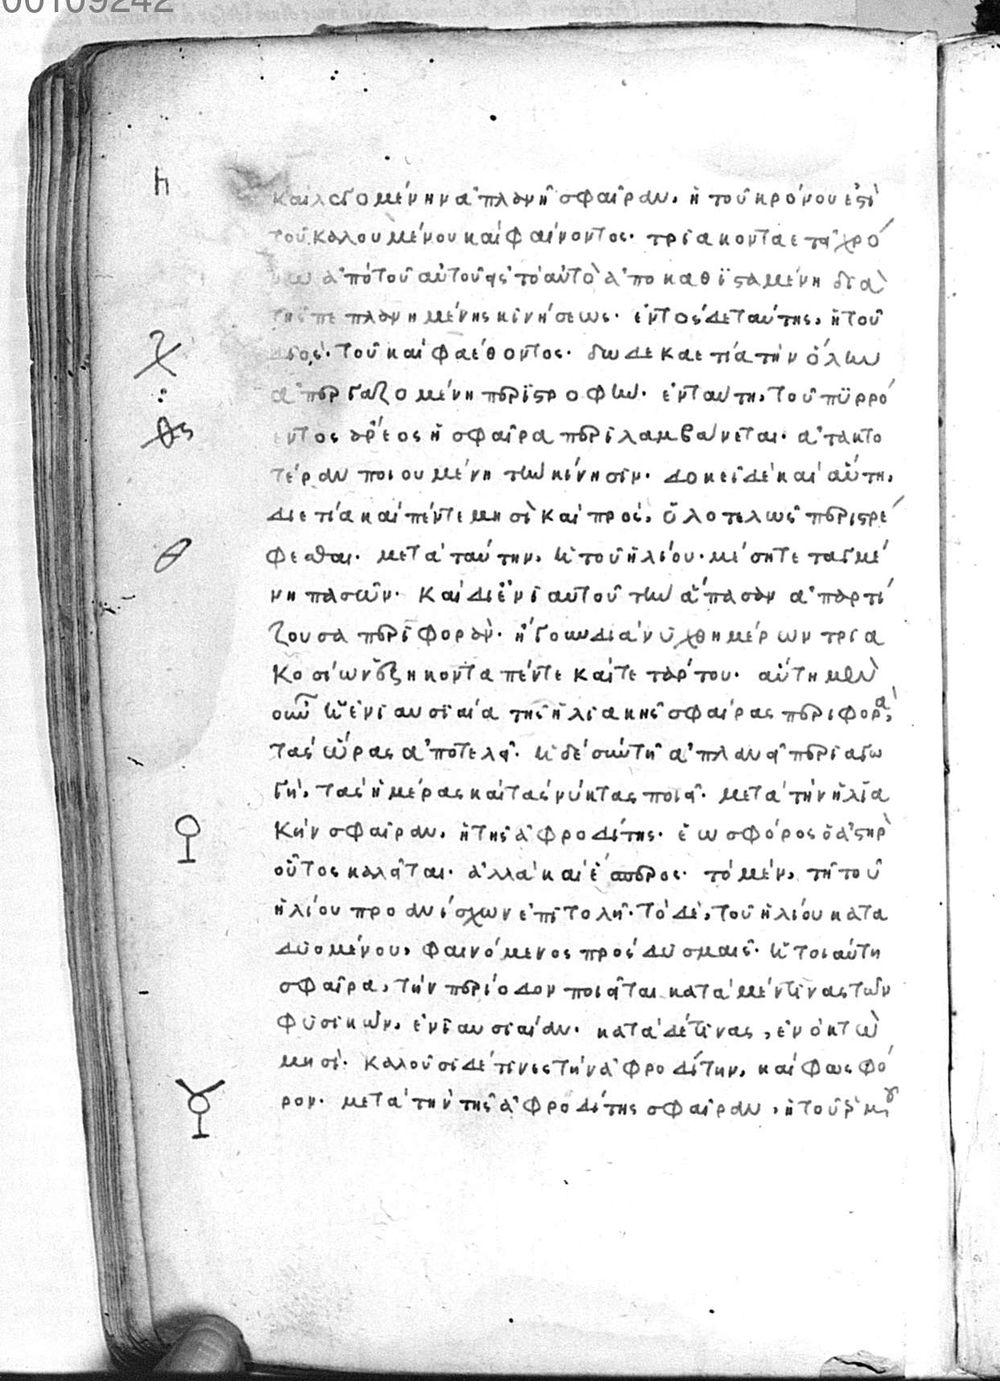 00109242
καλουμένην ἀπλανῆ σφαῖραν, ἡ τοῦ κρόνου ἐστὶ
τοῦ καλουμένου καὶ φαίνοντος· τριακονταετεῖ χρό
νω ἀπὸ τοῦ αὐτοῦ εἰς τὸ αὐτὸ ἀποκαθισταμένη διὰ
τῆς πεπλανημένης κινήσεως· ἐντὸς δὲ ταύτης, ἡ τοῦ
διὸς· τοῦ καὶ φαέθοντος· δωδεκαετία τὴν ὅλην
ἀπεργαζομένη περιστροφήν· ἐν ταύτη, τοῦ πυρό
εντος ἄρεος ἡ σφαῖρα περιλαμβάνεται· ἀτακτο
τέραν ποιουμένη τὴν κίνησιν· δοκεῖ δὲ καὶ αὕτη,
διετία καὶ πέντε μησὶ καὶ πρὸς, ὁλοτελῶς περιστρέ
φεσθαι· μετὰ ταύτην, ἡ τοῦ ἡλίου· μέση τεταγμέ
νη πασῶν· καὶ δι᾽ ἐνιαυτοῦ τὴν ἅπασαν ἀπαρτί
ζουσα περιφορὰν· ἤγουν διὰ νυχθημέρων τρια
κοσίων ἑξήκοντα πέντε καὶ τετάρτου· αὕτη μὲν
οὖν ἡ ἐνιαυσιαία τῆς ἡλιακῆς σφαίρας περιφορὰ,
τὰς ὥρας ἀποτελεῖ· ἡ δὲ σὺν τῆ ἀπλανεῖ περιαγω
γὴ, τὰς ἡμέρας καὶ τὰς νύκτας ποιεῖ· μετὰ τὴν ἡλια
κὴν σφαῖραν, ἡ τῆς ἀφροδίτης· ἑωσφόρος ὁ ἀστὴρ
οὗτος καλεῖται· ἀλλὰ καὶ ἕσπερος· τὸ μὲν, τῆ τοῦ
ἡλίου προανίσχων ἐπιτολῆ· τὸ δὲ, τοῦ ἡλίου κατα
δυομένου, φαινόμενος πρὸς δυσμαῖς· ἡ τοιαύτη
σφαῖρα, τὴν περίοδον ποιεῖται κατὰ μέν τινας τῶν
φυσικῶν, ἐνιαυσιαίαν· κατὰ δέ τινας, ἐν ὀκτὼ
μησὶ· καλοῦσι δέ τινες τὴν ἀφροδίτην, καὶ φωσφό
ρον· μετὰ τὴν τῆς ἀφροδίτης σφαῖραν, ἡ τοῦ ἑρμοῦ